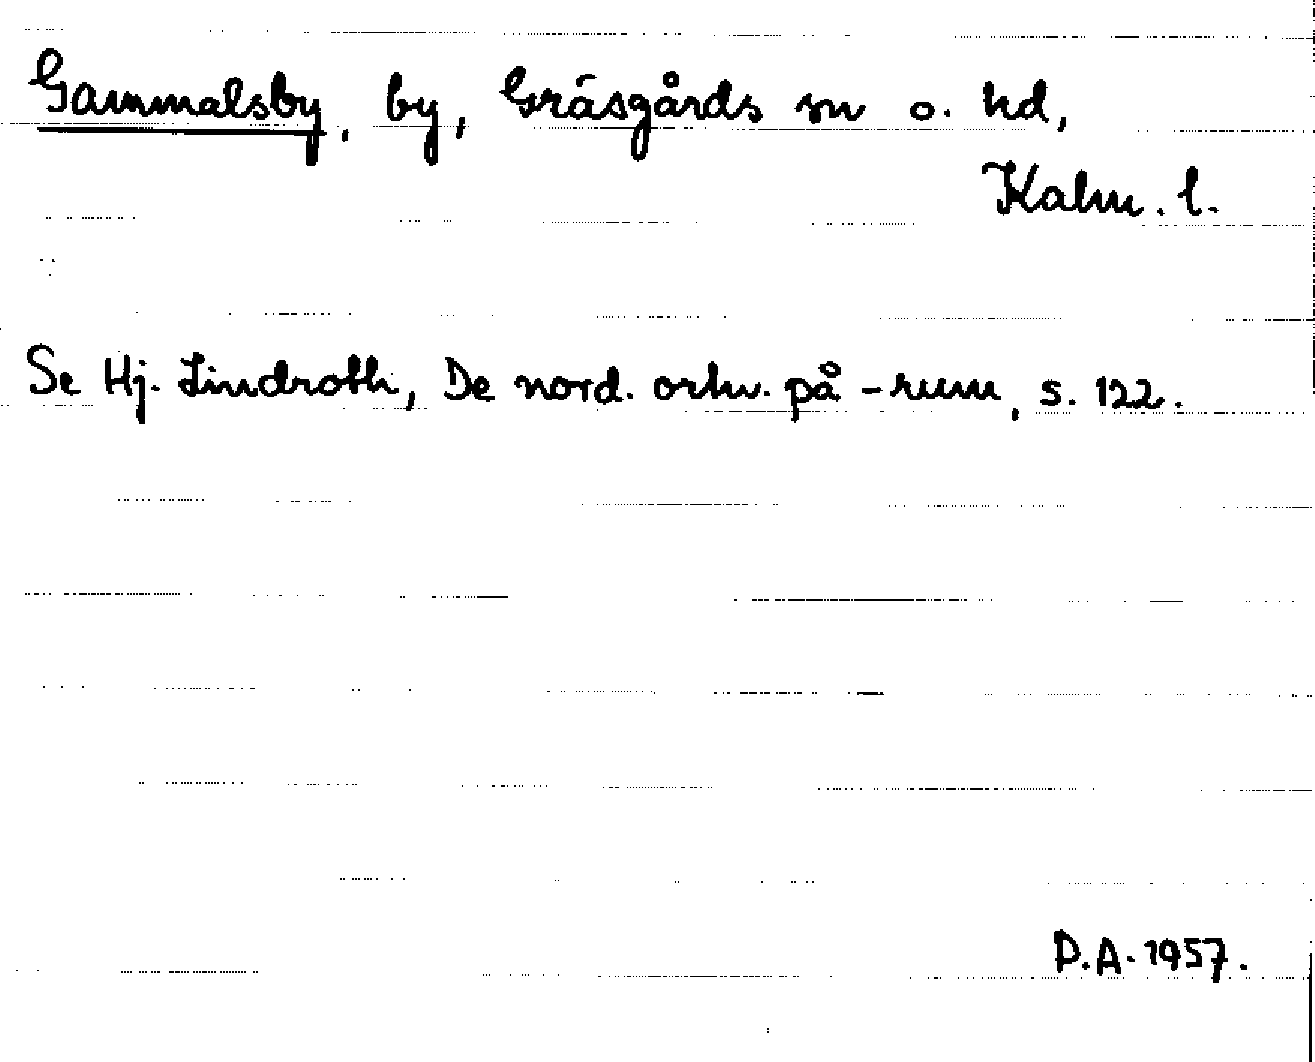 Gammalsby, by, Gräsgårds sn o. hd,
Kalm. l.
Se Hj. Lindroth, De nord. ortn. på -rum, s. 122.
D.A. 1957.